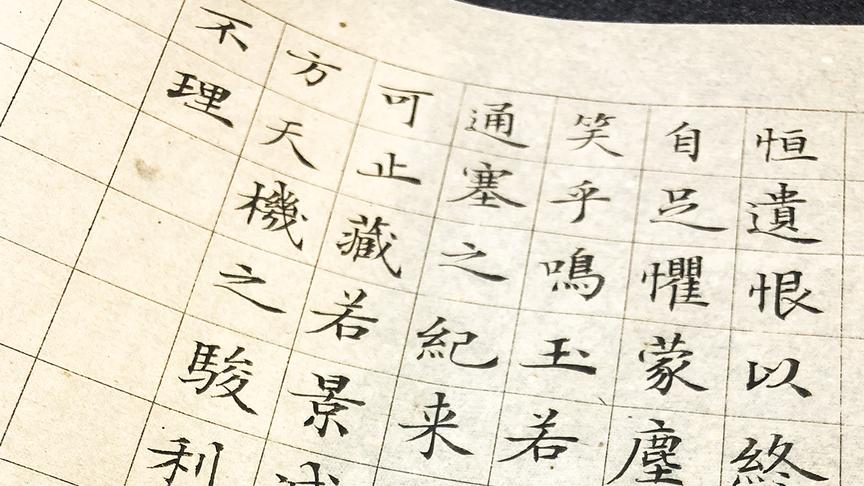 恒遺恨以終
自足懼蒙塵
笑乎鳴玉若
通塞之紀来
可止藏若景
方天機之駿利
不理